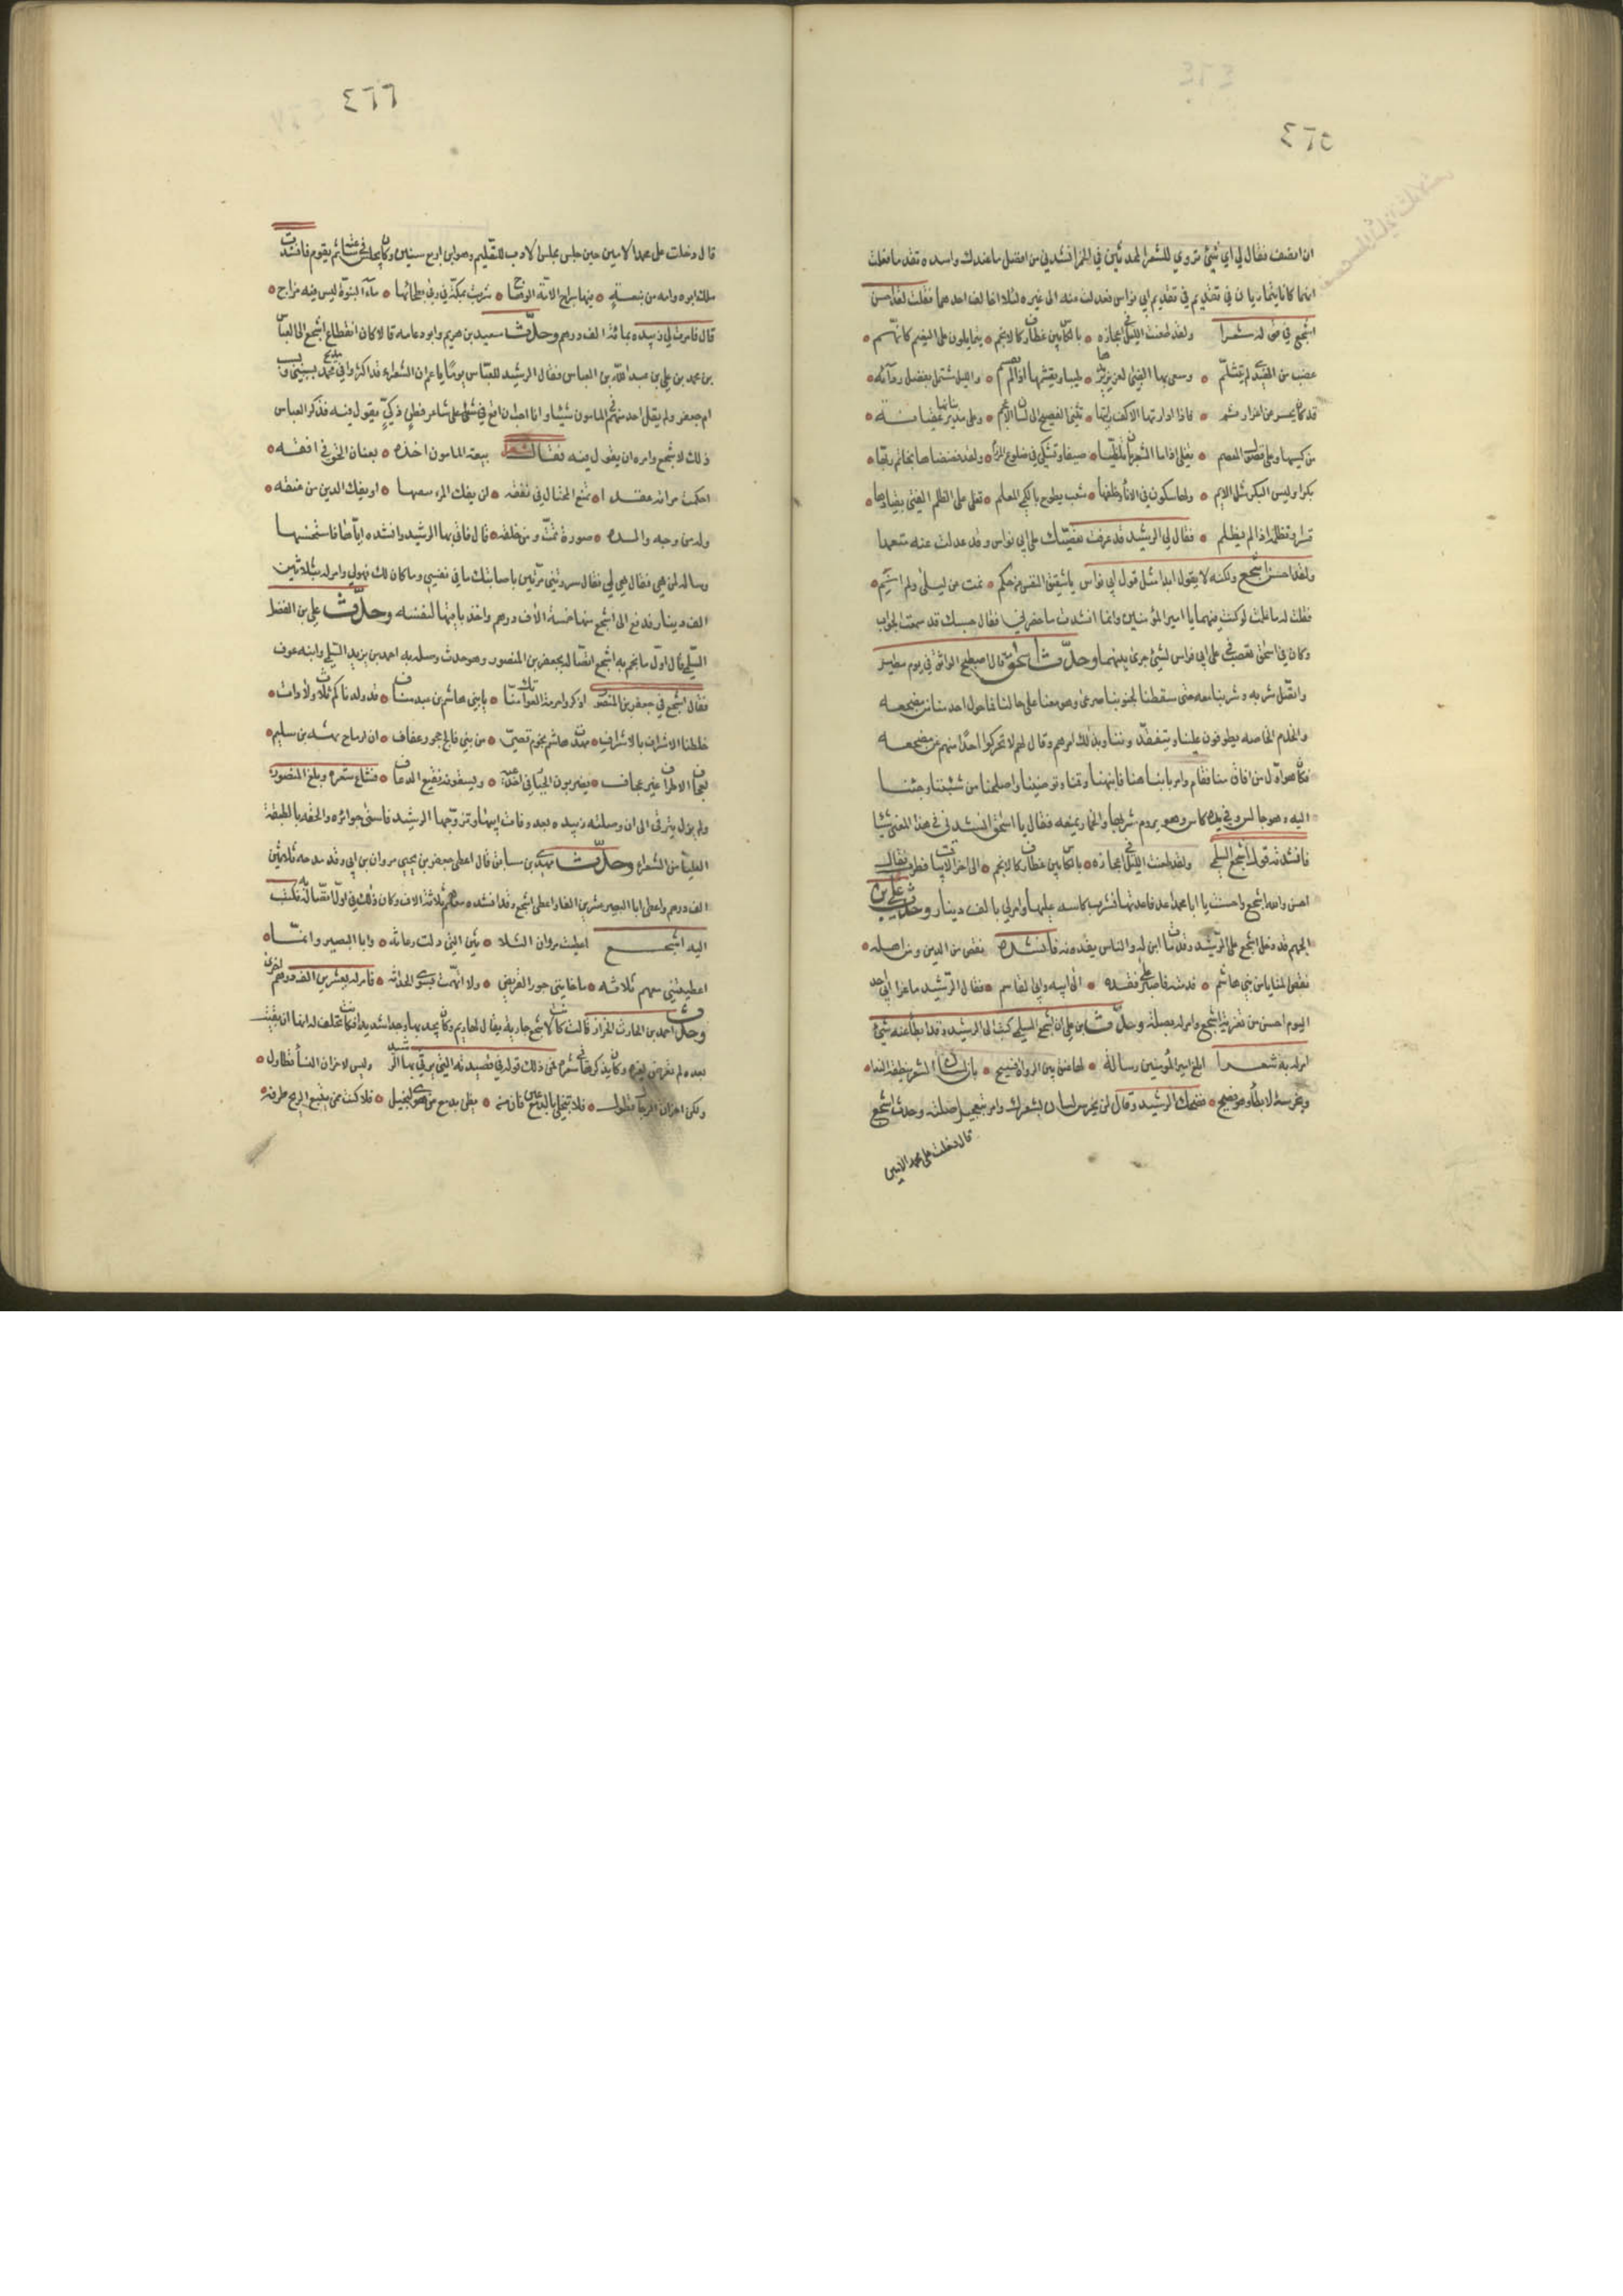 ٤٦٥
ان امضت فقال لي اي شئ تروي للشعرا المحدثين في الخمر انشدني من افضل ما عندك واسده تقدما فعلت
انهما كانا يتماريان في تقديم ابي نواس فعدلت منه الى غيره لئلا اخالف احدهما فقلت لقد احسن
اشجع في قوله شعرا ولقد طعنت الليل في اعجازه بالكاس بين غطارف كالانجم يتمايلون على النعيم كانهم
قضب من الهندي لم تتثلم وسعى بها الظبي الغرير يزيدها طيبا ويغشمها اذا لم تغشم والليل مشتمل بفضل ردائه
قد كاد يحسر عن اغر ارثم فاذا ادارتها الاكف رايتها تثني الفصيح الى لسان الاعجم وعلى بنان مديرها عقيانة
من كسبها وعلى فضول المعصم تغلي اذا ما الشعريان تلظيا صيفا وتسكن في طلوع المرزم ولقد فضضناها بخاتم ربها
بكرا وليس البكر مثل الايم ولها سكون في الاناء وخلفها شعب يطوح بالكمي المعلم تعطي على الظلم الفتى بقيادها
قسرا وتظلمه اذا لم يظلم فقال لي الرشيد قد عرفت تعصبك على ابي نواس وقد عدلت عنه متعمدا
ولقد احسن اشجع ولكنه لا يقول ابدا مثل قول ابي نواس يا شقيق النفس من حكم نمت عن ليلى ولم انم
فقلت له ما علمت لو كنت فيهما يا امير المؤمنين وانما انشدت ما حضرني فقال حسبك قد سمعت الجواب
وكان في اسحق تعصب على ابي نواس لشئ جرى بينهما وحدث اسحق قال اصطبح الواثق في يوم مطير
واتصل شربه وشربنا معه حتى سقطنا لجنوبنا صرعى وهو معنا على حالنا فما حول احد منا عن مضجعه
والخدم الخاصه يطوفون علينا ويتفقدوننا وبذلك امرهم وقال لهم لا تحركوا احدا منهم من مضجعه
فكان هو اول من افاق منا فقام وامر بانباهنا فانبهنا وقمنا وتوضينا واصلحنا من شئننا وجئنا
اليه وهو جالس وفي يده كاس وهو يروم شربها والخمار يمنعه فقال يا اسحق انشدني في هذا المعنى شيا
فانشدته قول اشجع السلمي ولقد طعنت الليل في اعجازه بالكاس بين غطارف كالانجم الى اخر الابيات فطرب وقال
احسن والله اشجع واحسنت يا ابا محمد اعد فاعدتها فشرب كاسه عليها وامر لي بالف دينار وحدث علي بن
الجهم قد دخل اشجع على الرشيد وقد مات ابن له والناس يعزونه فانشده نقص من الدين ومن اهله
نقص المنايا من بني هاشم قدمته فاصبر على فقده الى ابيه وابي القاسم فقال الرشيد ما عزاني احد
اليوم احسن من تعزية اشجع وامر له بصلة وحدث ابن علي ان اشجع السلمي كتب الى الرشيد وقد ابطا عنه شئ
امر له به شعرا ابلغ امير المؤمنين رسالة لها عنق بين الرواة فسيح بان لسان الشعر ينطقه الندا
ويخرسه الابطاء وهو فصيح فضحك الرشيد وقال لن يخرس لسان شعرك وامر بتعجيل صلته وحدث اشجع
قال دخلت على محمد الامين
٤٦٦
قال دخلت على محمد الامين حين جلس مجلس الادب للتعليم وهو ابن اربع سنين وكان يجلس فيه ساعة ثم يقوم فانشدت
ملك ابوه وامه من نبعة منها سراج الامة الوهاج شربت بمكة في ربى بطحائها ماء النبوة ليس فيه مزاج
قال فامرت لي زبيده بمائة الف درهم وحدث سعيد بن هريم وابو دعامه قالا كان انقطاع اشجع الى العباس
بن محمد بن علي بن عبد الله بن العباس فقال الرشيد للعباس يوما يا عم ان الشعراء قد اكثروا في مديح محمد بسببي وبسبب
ام جعفر ولم يقل احد منهم في المامون شيئا وانا احب ان اقع في شعر على شاعر فطن ذكي يقول فيه فذكر العباس
ذلك لاشجع وامره ان يقول فيه فقال شعر بيعة المامون اخذه بعنان الحق في افقه
احكمت مراته عقدا تمنع المحتال في نفقه لن يفك المرء سعيها او يفك الدين من عنقه
وله من وجه والده صورة تمت ومن خلقه قال فاتى بها الرشيد وانشده اياها فاستحسنها
وساله لمن هي فقال هي لي فقال سررتني مرتين باصابتك ما في نفسي وما كان لك فهو لي وامر له بثلاثين
الف دينار فدفع الى اشجع منها خمسة الاف درهم واخذ باقيها لنفسه وحدث علي بن الفضل
السلمي قال اول ما نجم به اشجع اتصاله بجعفر بن المنصور وهو حدث وصله به احمد بن يزيد السلمي وابنه عوف
فقال اشجع في جعفر بن المنصور اذكروا حرمة العواتك منا يا بني هاشم بن عبد مناف قد ولدناكم ثلاث ولادات
خلطنا الاشراف بالاشراف مهدت هاشم نجوم قصي من بني فالج حجور عفاف ان ارماح بهثة بن سليم
لعجاف الاطراف غير عجاف يضربون الجبار في اخدعيه ويسقونه نقيع الذعاف فشاع شعره وبلغ المنصور
ولم يزل يترقى الى ان وصلته زبيده بعد وفاة ابيها وتزوجها الرشيد فاسنى جوائزه والحقه بالطبقة
العليا من الشعراء وحدث مهدي بن سابق قال اعطى جعفر بن يحيى مروان بن ابي وقد مدحه ثلاثين
الف درهم واعطى ابا البصير عشرين الفا واعطى اشجع وقد انشده معهم ثلاثة الاف وكان ذلك في اول اتصاله فكتب
اليه اشجع اعطيت مروان الثلا ثين التي دلت رعاثه وابا البصير وانما
اعطيتني معهم ثلاثه ما خانني حوك القريض ولا اتهمت سوى الحداثه فامر له بعشرين الف درهم اخرى
وحدث احمد بن الحارث الخراز قال كانت لاشجع جارية يقال لها ريم وكان يجد بها وجدا شديدا فكانت تحلف له انها ان بقيت
بعده لم تعرض لغيره وكان يذكرها في شعره فمن ذلك قوله في قصيدته التي يرثي بها الرشيد وليس لاحزان النساء تطاول
ولكن احزان الرجال تطول فلا تبخلي بالدمع عني فان من يظن بدمع عن هوى لبخيل فلا كنت ممن يتبع الريح طرفه